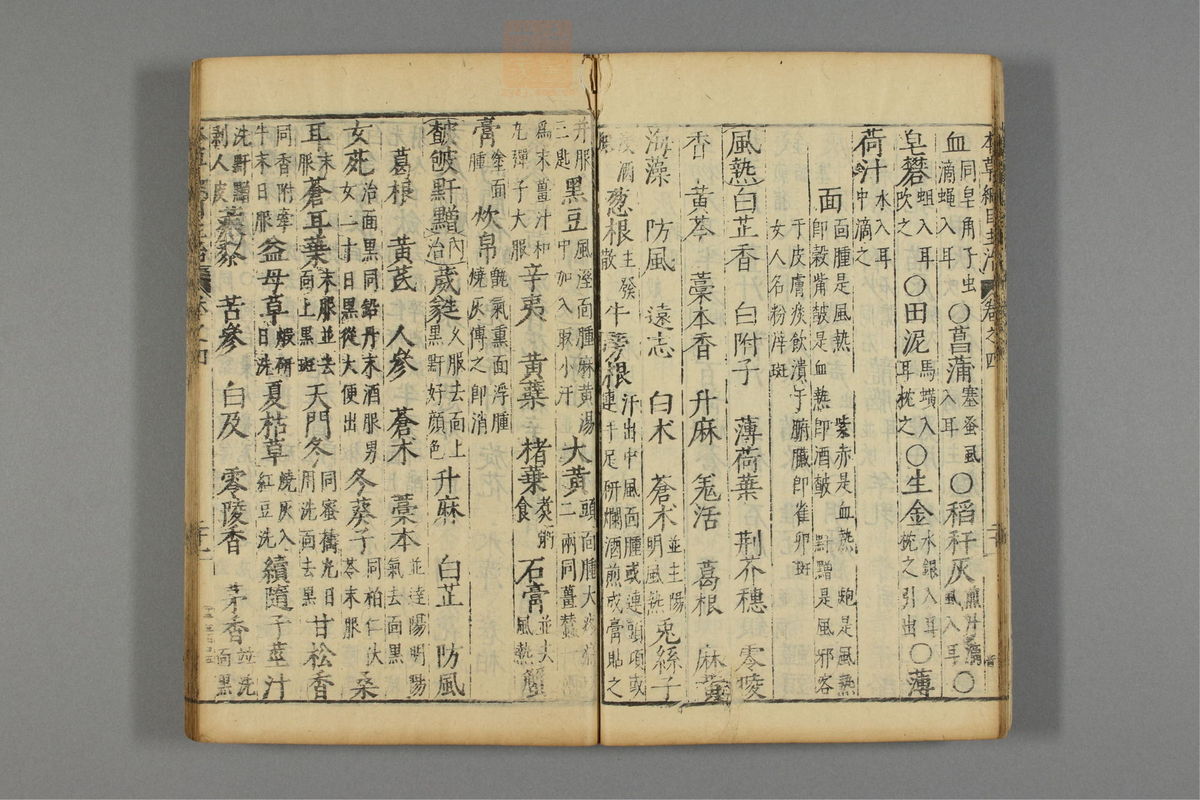 血同皂角子虫滴蠅入耳○菖蒲塞蚤虱入耳○稻稈灰煎汁滴虱入耳○
皂礬蛆入耳吹之○田泥馬蟥入耳枕之○生金水銀入耳枕之引出○薄
荷汁水入耳中滴之
面面腫是風熱 紫赤是血熱 皰是風熱
即穀觜皶是血熱即酒皶 䵟䵳是風邪客
于皮膚痰飲漬于腑臟即雀卵斑
女人名粉滓斑
風熱白芷香 白附子 薄荷葉 荊芥穗 零陵
香 黄芩 藁本香 升麻 羗活 葛根 麻黄
海藻 防風 遠志 白术 蒼术並主陽明風熱兎絲子
浸酒服葱根主發散牛旁根汗出中風面腫或連頭項或連手足研爛酒煎成膏貼之
并服三匙黑豆風溼面腫麻黄湯中加入取小汗大黄頭面腫大疼痛二兩同薑蠶一兩
爲末薑汁和丸彈子大服辛夷 黄葉 楮葉煑粥食石膏並去風熱
膏塗面腫炊帛甑氣熏面浮腫燒灰傅之即消
皶皰䵟䵳內治葳蕤久服去面上黑䵟好顔色升麻 白芷 防風
葛根 黄芪 人參 蒼术 藁本並達陽明陽氣去面黑
女菀治面黑同鉛丹末酒服男女二十日黑從大便出冬葵子同柏仁茯苓末服桑
耳末服蒼耳葉末服並去面上黑斑天門冬同蜜擣丸日用洗面去黑甘松香
同香附牽牛末日服益母草煅研日洗夏枯草燒灰入紅豆洗續隨子莖汁
洗䵟䵳剥人皮蒺藜 苦參 白及 零陵香 茅香並洗面黑